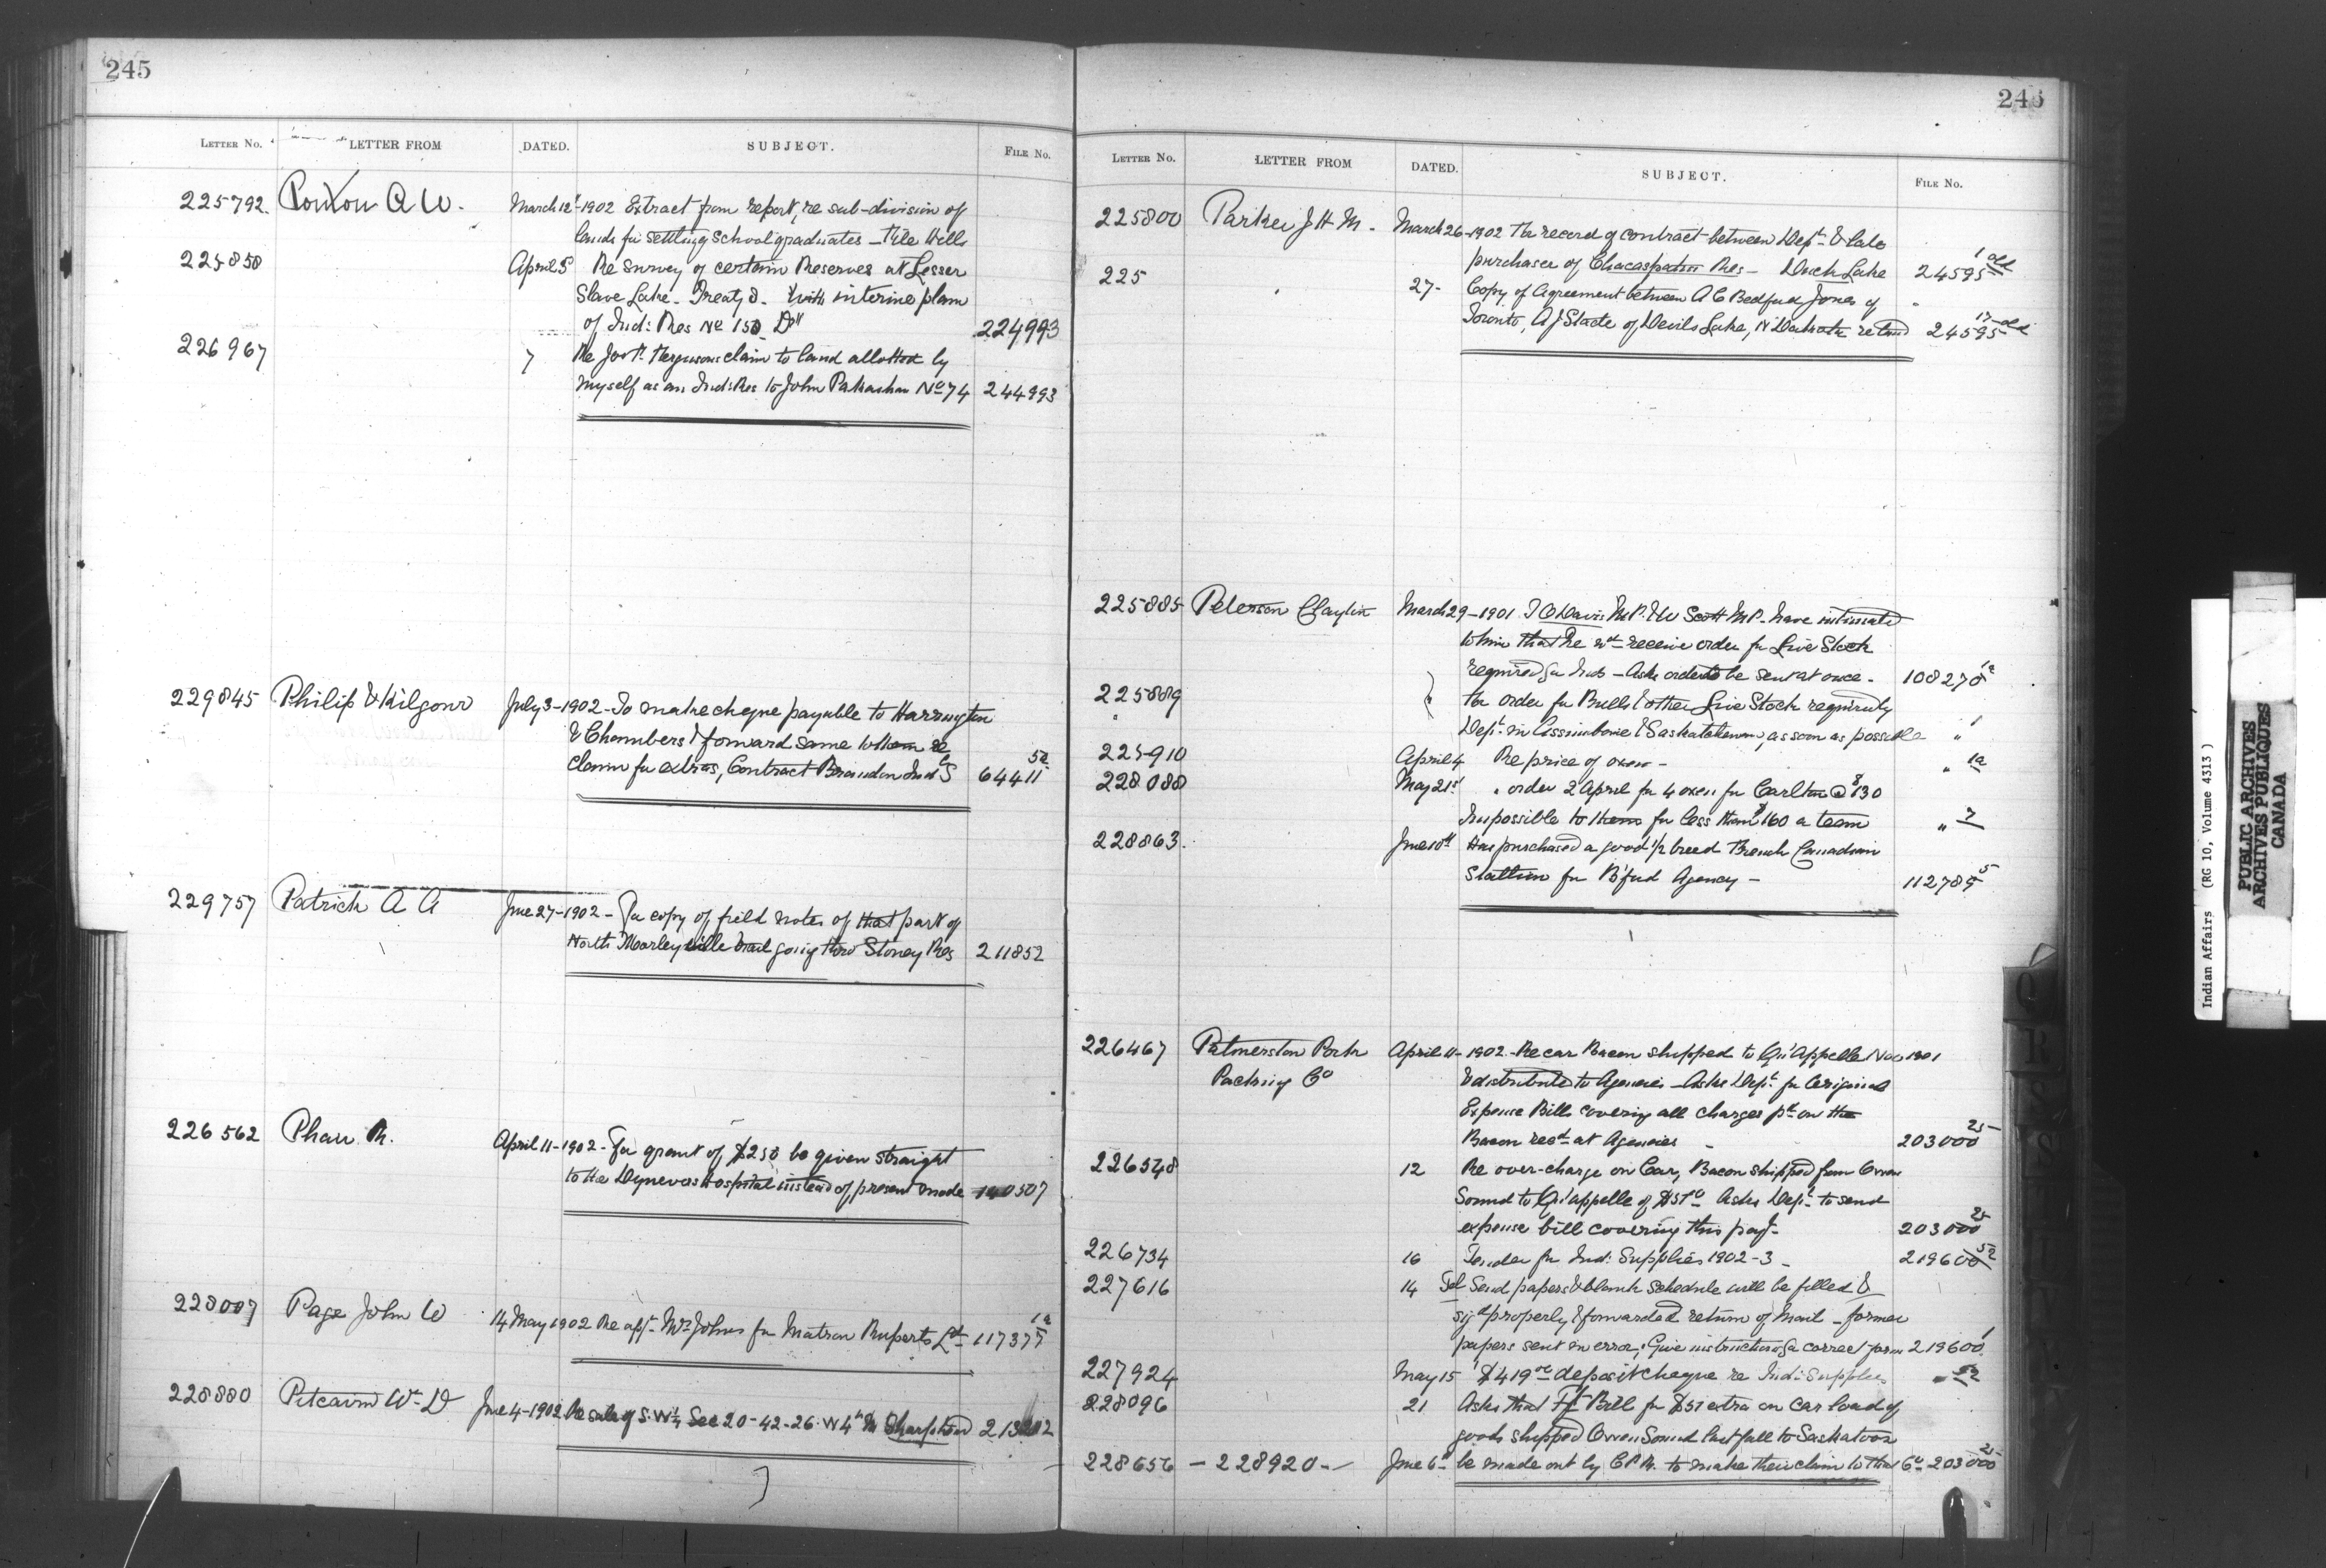 245
LETTER No. LETTER FROM DATED. SUBJECT. FILE No.
225792. Ponton A W. March 12 - 1902 Extract from report, re sub-division of
lands for settling School graduates - File Hills
225858 April 5 Re Survey of certain Reserves at Lesser
Slave Lake - Treaty 8. With interim plan
of Ind: Res No 150 D" 224993
226967 7 Re Jos. Fergusons claim to land allotted by
myself as an Ind: Res to John Pakashan No 74 244993
229845 Philip & Kilgour July 3 - 1902 - To make cheque payable to Harrington
& Chambers & forward same to them re
claim for extras, Contract Brandon Ind S 64411 5a
229757 Patrick A A June 27 - 1902 - For copy of field notes of that part of
North Morleyville trail going thro Stoney Res 211852
226562 Phair R. April 11 - 1902 - For grant of $250 be given straight
to the Dynevor Hospital instead of present mode 140507
228007 Page John W 14 May 1902 Re appt. Mrs Johns for Matron Ruperts Ld 117377 1a
228880 Pitcairn Wm D June 4 - 1902 Re sale of S.W¼ Sec 20-42-26. W 4th M Sharphead
245
LETTER No. LETTER FROM DATED. SUBJECT. FILE No.
225800 Parker J H M. March 26 - 1902 For record of contract between Dept. & late
purchaser of Chacaspatin Res - Duck Lake 24595 1 old
225 27 - Copy of Agreement between A C Bedford Jones of
Toronto, A J Slade of Devils Lake, N Dakota re land 24595 17 old
225885 Peterson Clayton March 29 - 1901 T O Davis M.P. & W Scott M.P. have intimated
to him that he wd receive order for Live Stock
required for Inds - Asks order to be sent at once - 108270 1a
225889 " For order for Bulls & other Live Stock required by
Dept. in Assiniboia & Saskatchewan, as soon as possible " 1
225910 April 4 Re price of oxen - " 1a
228088 May 21st " order 2 April for 4 oxen for Carlton @ $130
Impossible to them for less than $160 a team " 7
228863. June 10th Has purchased a good ½ breed French Canadian
Stallion for B'ford Agency - 112785 5
226467 Palmerston Pork April 11 - 1902 - Re car Bacon shipped to Qu'Appelle Nov 1901
Packing Co & distributed to Agencies - Asks Dept. for Original
Expense Bills covering all charges pd on the
Bacon recd at Agencies - 203000 25
226548 12 Re over-charge on Car, Bacon shipped from Owen
Sound to Qu'appelle of $51.0 Asks Dept. to send
expense bill covering this pay. 203000 25
226734 16 Tender for Ind: Supplies 1902-3 - 219600 52
227616 14 Tel Send papers & blank schedule will be filled &
sigd properly & forwarded return of mail - former
papers sent in error; Give instructions for correct form 219600 1
227924 May 15 $419.00 deposit cheque re Ind: Supplies " 52
228096 21 Asks that Ft. Bill for $51 extra on car load of
goods shipped Owen Sound last fall to Saskatoon
228656 - 228920 - June 6th be made out by C P R. to make their claim to that Co. 203000 25
Indian Affairs (RG 10, Volume 4313)
PUBLIC ARCHIVES
ARCHIVES PUBLIQUES
CANADA